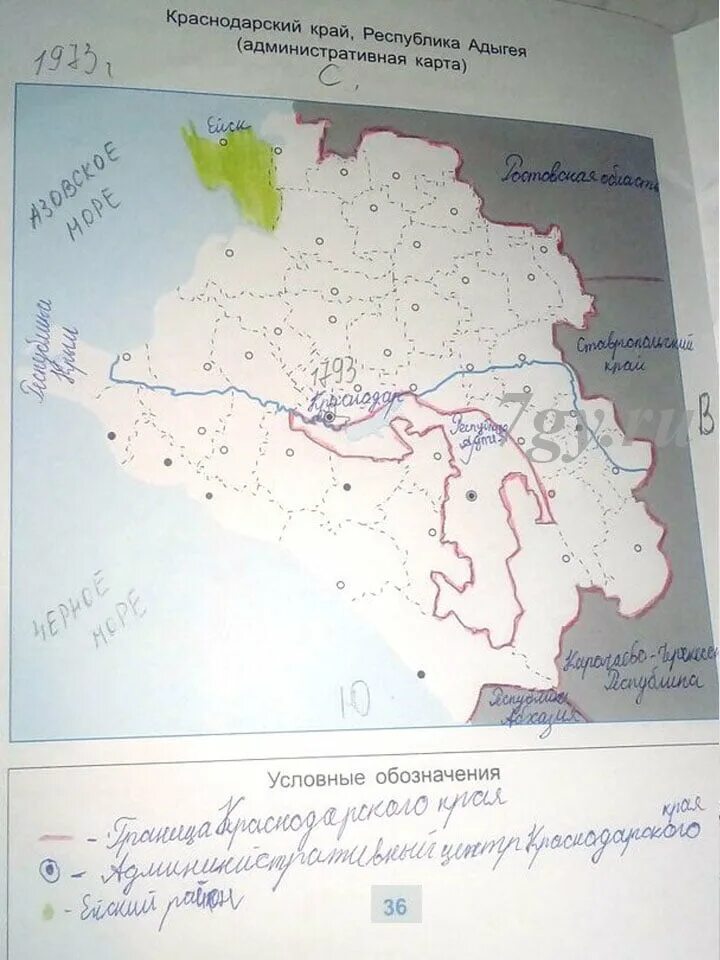 Краснодарский край, Республика Адыгея
(административная карта)
1973 г
С.
Ейск
АЗОВСКОЕ
МОРЕ
Ростовская область
Республика
Крым
Ставропольский
край
1793
Краснодар
В
Республика
7gy.ru
ЧЕРНОЕ
МОРЕ
Ю
Карачаево-Черкесская
Республика
Республика
Абхазия
Условные обозначения
- Граница Краснодарского края
- Административный центр Краснодарского края
- Ейский район
36